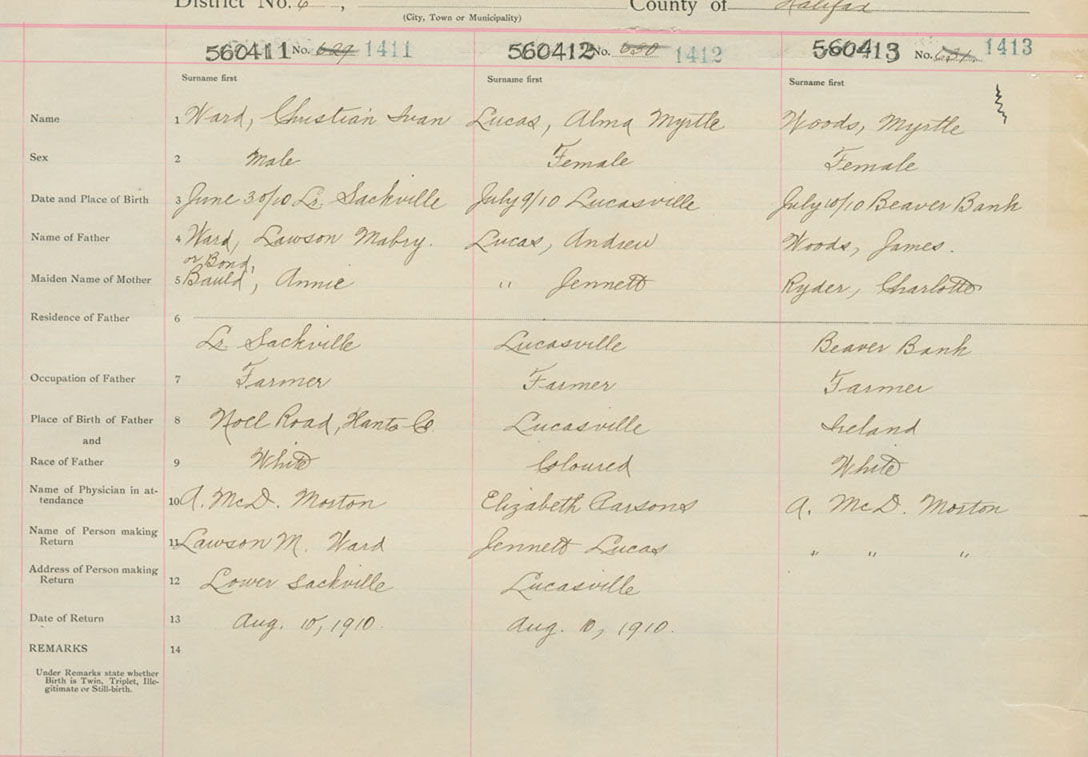 District No. 6, County of Halifax
(City, Town or Municipality)
560411 No. 629 1411 560412 No. 630 1412 560413 No. 631 1413
Surname first Surname first Surname first
Name 1 Ward, Christian Ivan Lucas, Alma Myrtle Woods, Myrtle
Sex 2 Male Female Female
Date and Place of Birth 3 June 30/10 Lr. Sackville July 9/10 Lucasville July 10/10 Beaver Bank
Name of Father 4 Ward, Lawson Mabry. Lucas, Andrew Woods, James.
or Bond,
Maiden Name of Mother 5 Bauld, Annie " Jennett Ryder, Charlotte
Residence of Father 6
Lr. Sackville Lucasville Beaver Bank
Occupation of Father 7 Farmer Farmer Farmer
Place of Birth of Father 8 Noel Road, Hants Co Lucasville Ireland
and
Race of Father 9 White Coloured White
Name of Physician in at-
tendance 10 A. McD. Morton Elizabeth Parsons A. McD. Morton
Name of Person making
Return 11 Lawson M. Ward Jennett Lucas " " "
Address of Person making
Return 12 Lower Sackville Lucasville
Date of Return 13 Aug. 10, 1910. Aug. 10, 1910.
REMARKS 14
Under Remarks state whether
Birth is Twin, Triplet, Ille-
gitimate or Still-birth.